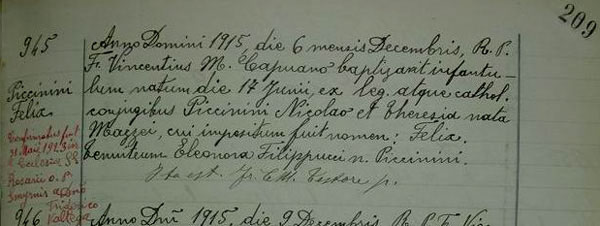 209
945
Piccinini
Felix
Confirmatus fuit
31 Maii 1923 in
Ecclesia SS
Rosarii o. P.
Smyrnis
Federico
Anno Domini 1915, die 6 mensis Decembris, R. P.
Fr. Vincentius M. Capuano baptizavit infantu-
lum natum die 17 Junii, ex leg. atque cathol.
conjugibus Piccinini Nicolao et Theresia nata
Mazzei, cui impositum fuit nomen: Felix.
Tenuit eum Eleonora Filippucci n. Piccinini.
Ita est Fr. C. M. Testore p.
946
Anno Dñi 1915, die 9 Decembris, R. P. F. Vin